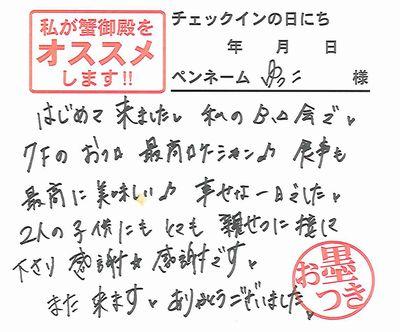 私が蟹御殿を
オススメ
します!!
チェックインの日にち
年 月 日
ペンネーム ゆっこ 様
はじめて来ました。私のB.D会で♥
7Fのお風呂 最高ロケーション♪ 食事も
最高に美味しい♪ 幸せな一日でした♥
2人の子供にも とても 親せつに接して
下さり 感謝☆感謝です♥
また 来ます♥ ありがとうございました♥
お墨つき